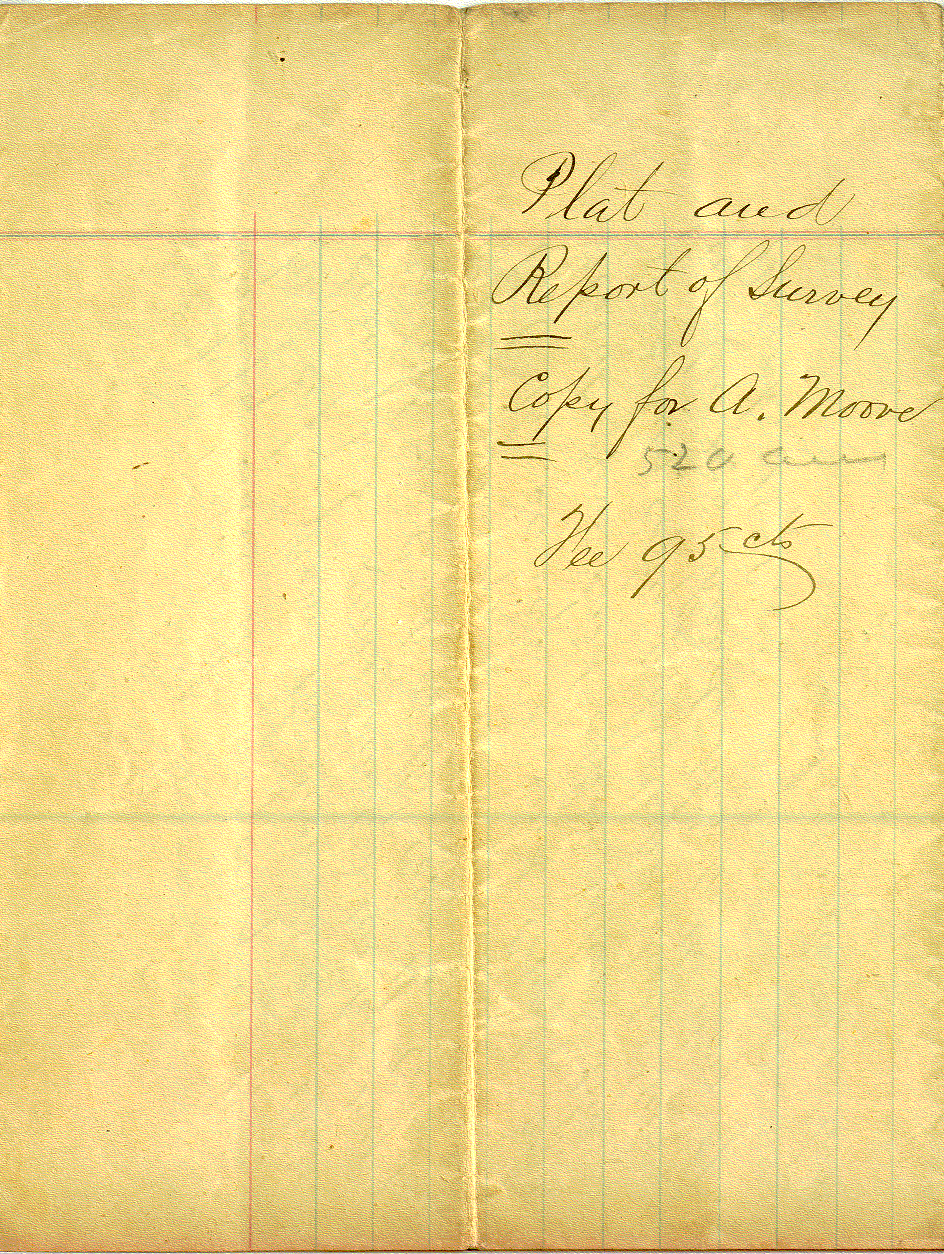 Plat and
Report of Survey
Copy for A. Moore
520
Fee 95 cts